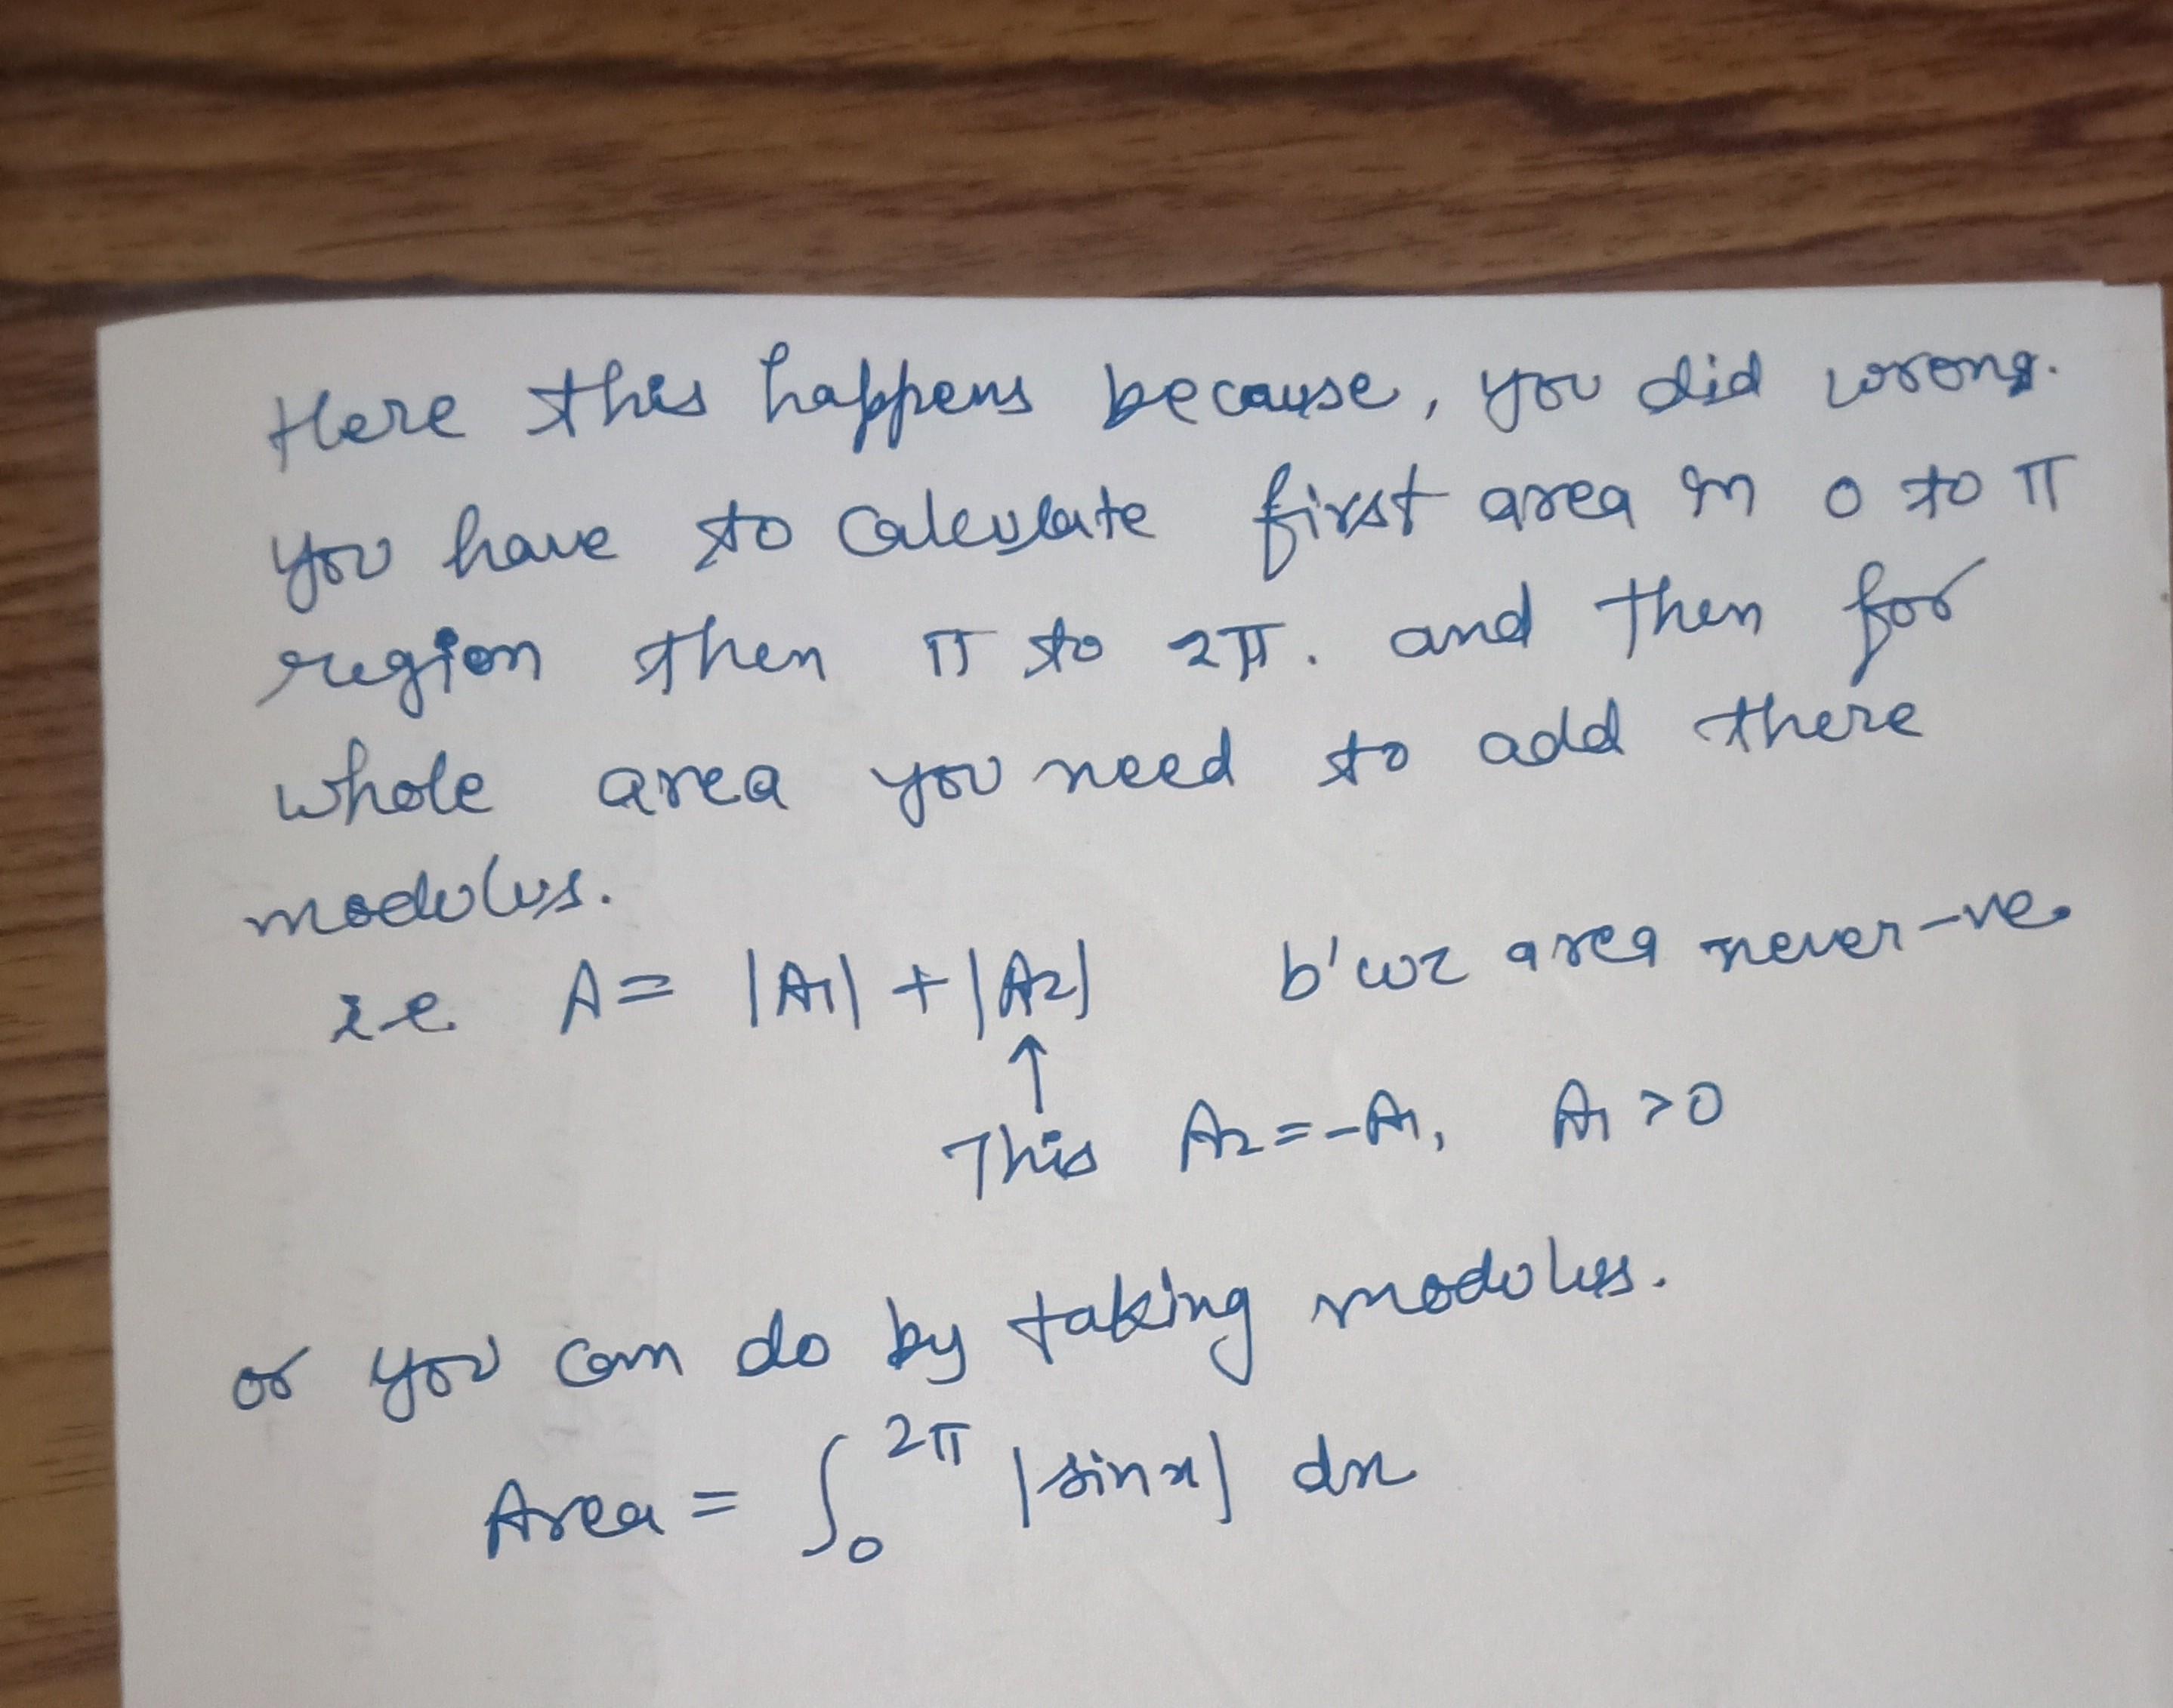 Here this happens because, you did wrong.
you have to calculate first area in 0 to π
region then π to 2π. and then for
whole area you need to add there
modulus.
i.e A = |A1| + |A2| b'coz area never -ve.
↑
This A2 = -A1, A1 > 0
or you can do by taking modulus.
Area = ∫₀^2π |sinx| dx